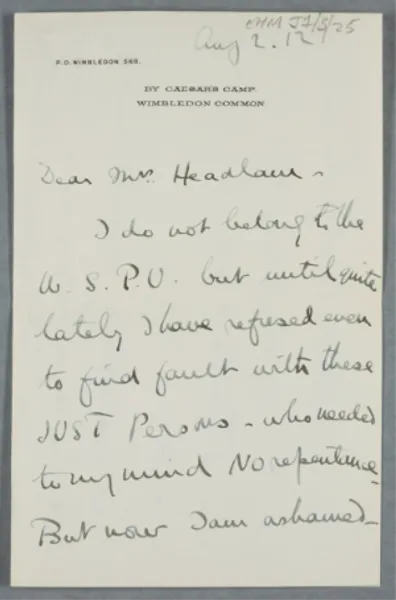 CHM J7/3/25
Aug 2. 12
P.O. WIMBLEDON 568.
BY CAESARS CAMP.
WIMBLEDON COMMON
Dear Mr. Headlam -
I do not belong to the
W. S. P. U. but until quite
lately I have refused even
to find fault with these
JUST Persons - who needed
to my mind No repentance -
But now I am ashamed -